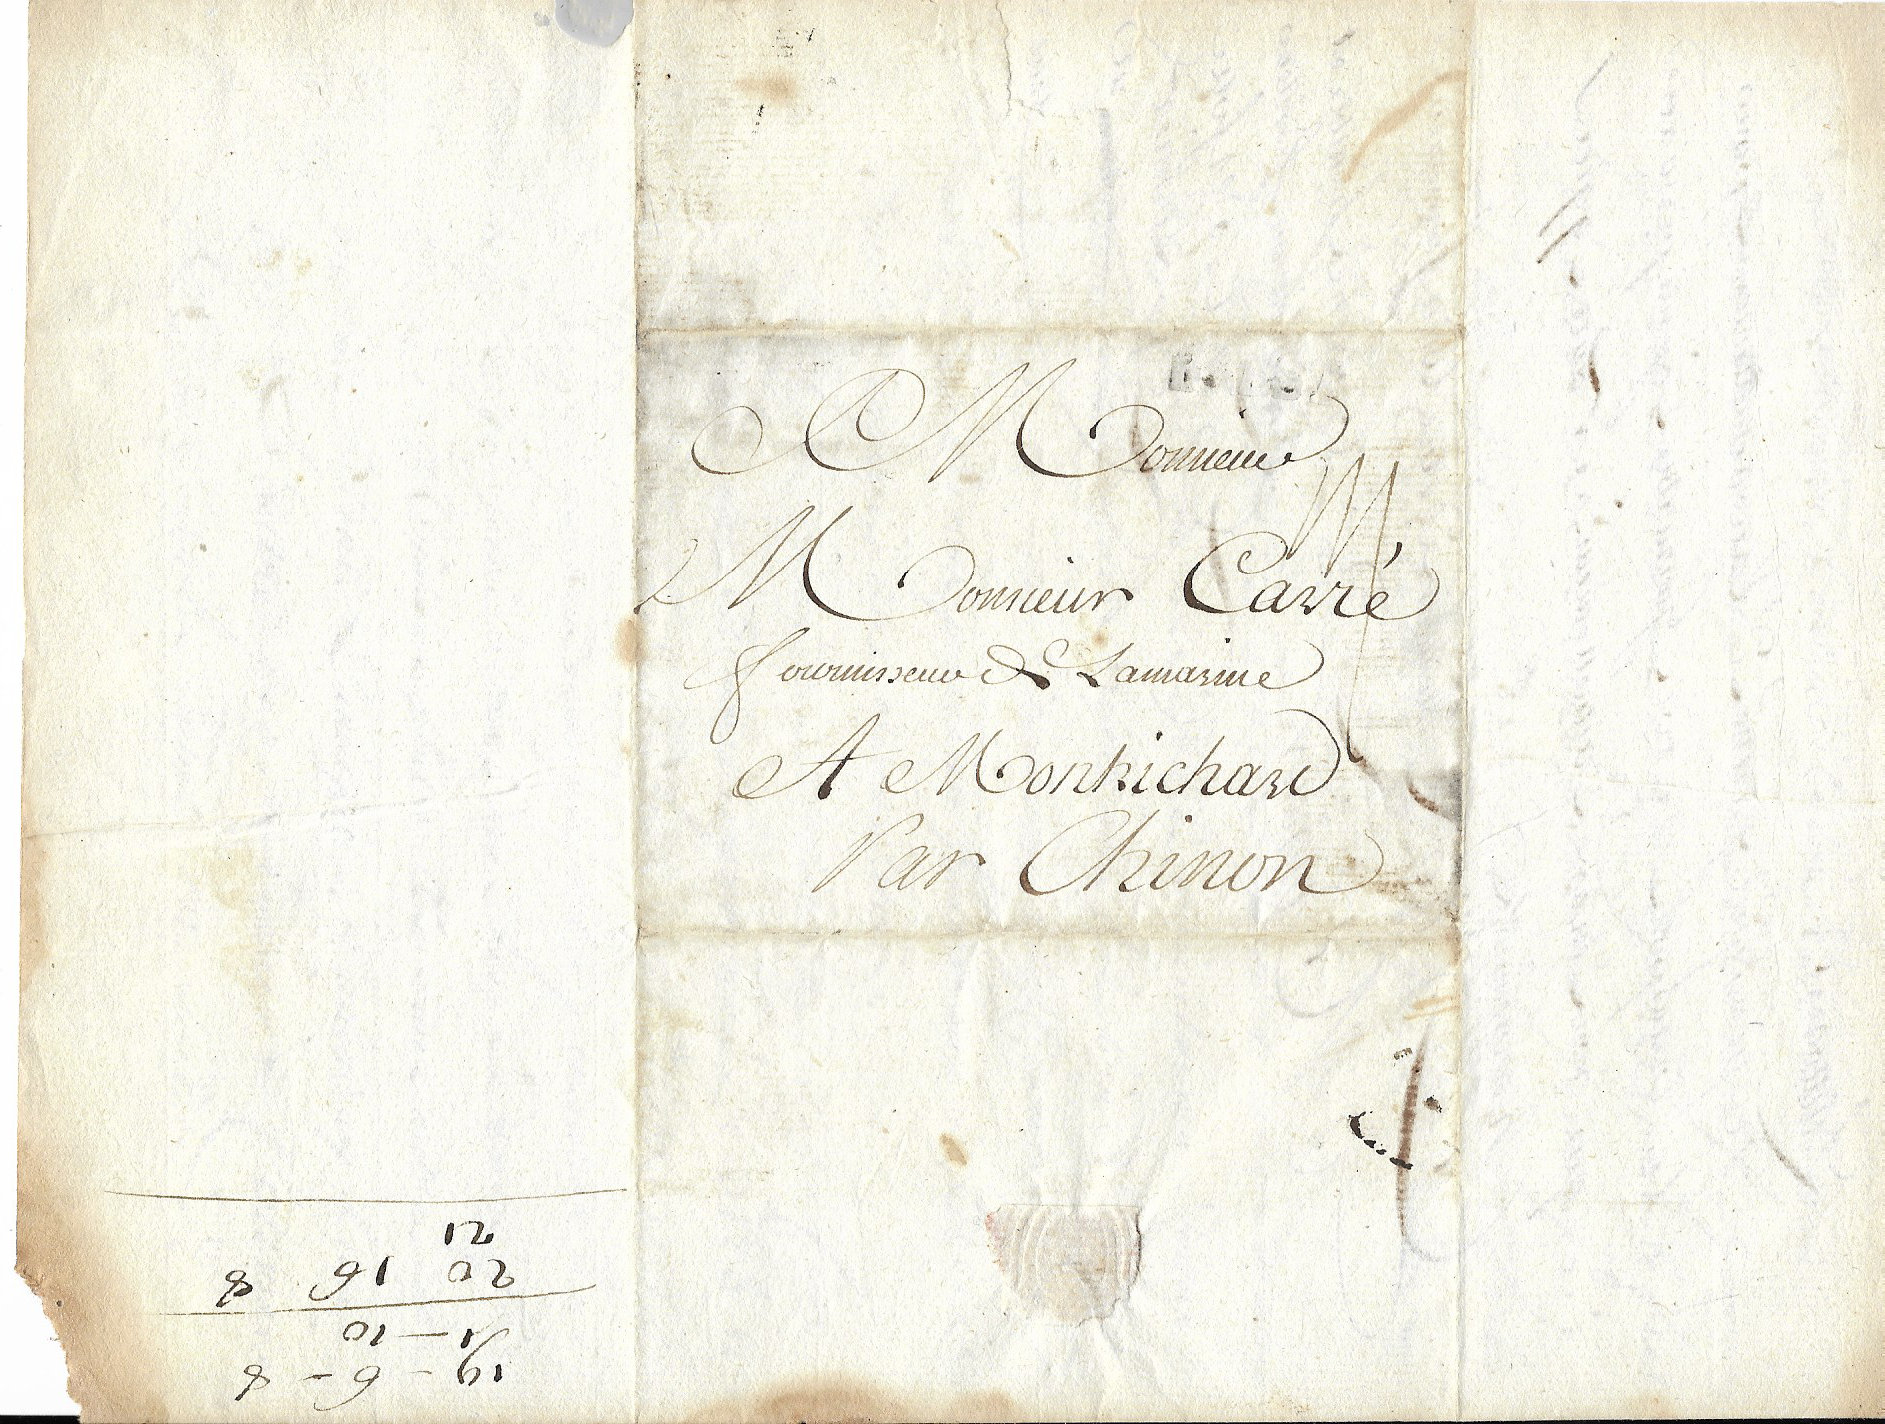 A Monsieur
Monsieur Carré
fournisseur de Lamarine
A Montrichard
Par Chinon
19 - 6 - 8
1 - 10
20 16 8
21